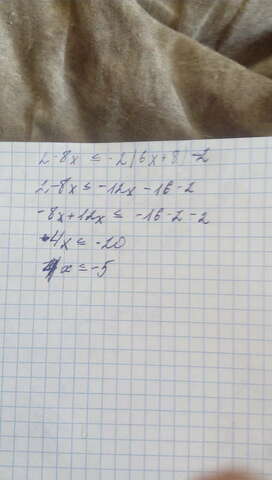 2-8x ≤ -2(6x+8)-2
2-8x ≤ -12x-16-2
-8x+12x ≤ -16-2-2
4x ≤ -20
x ≤ -5